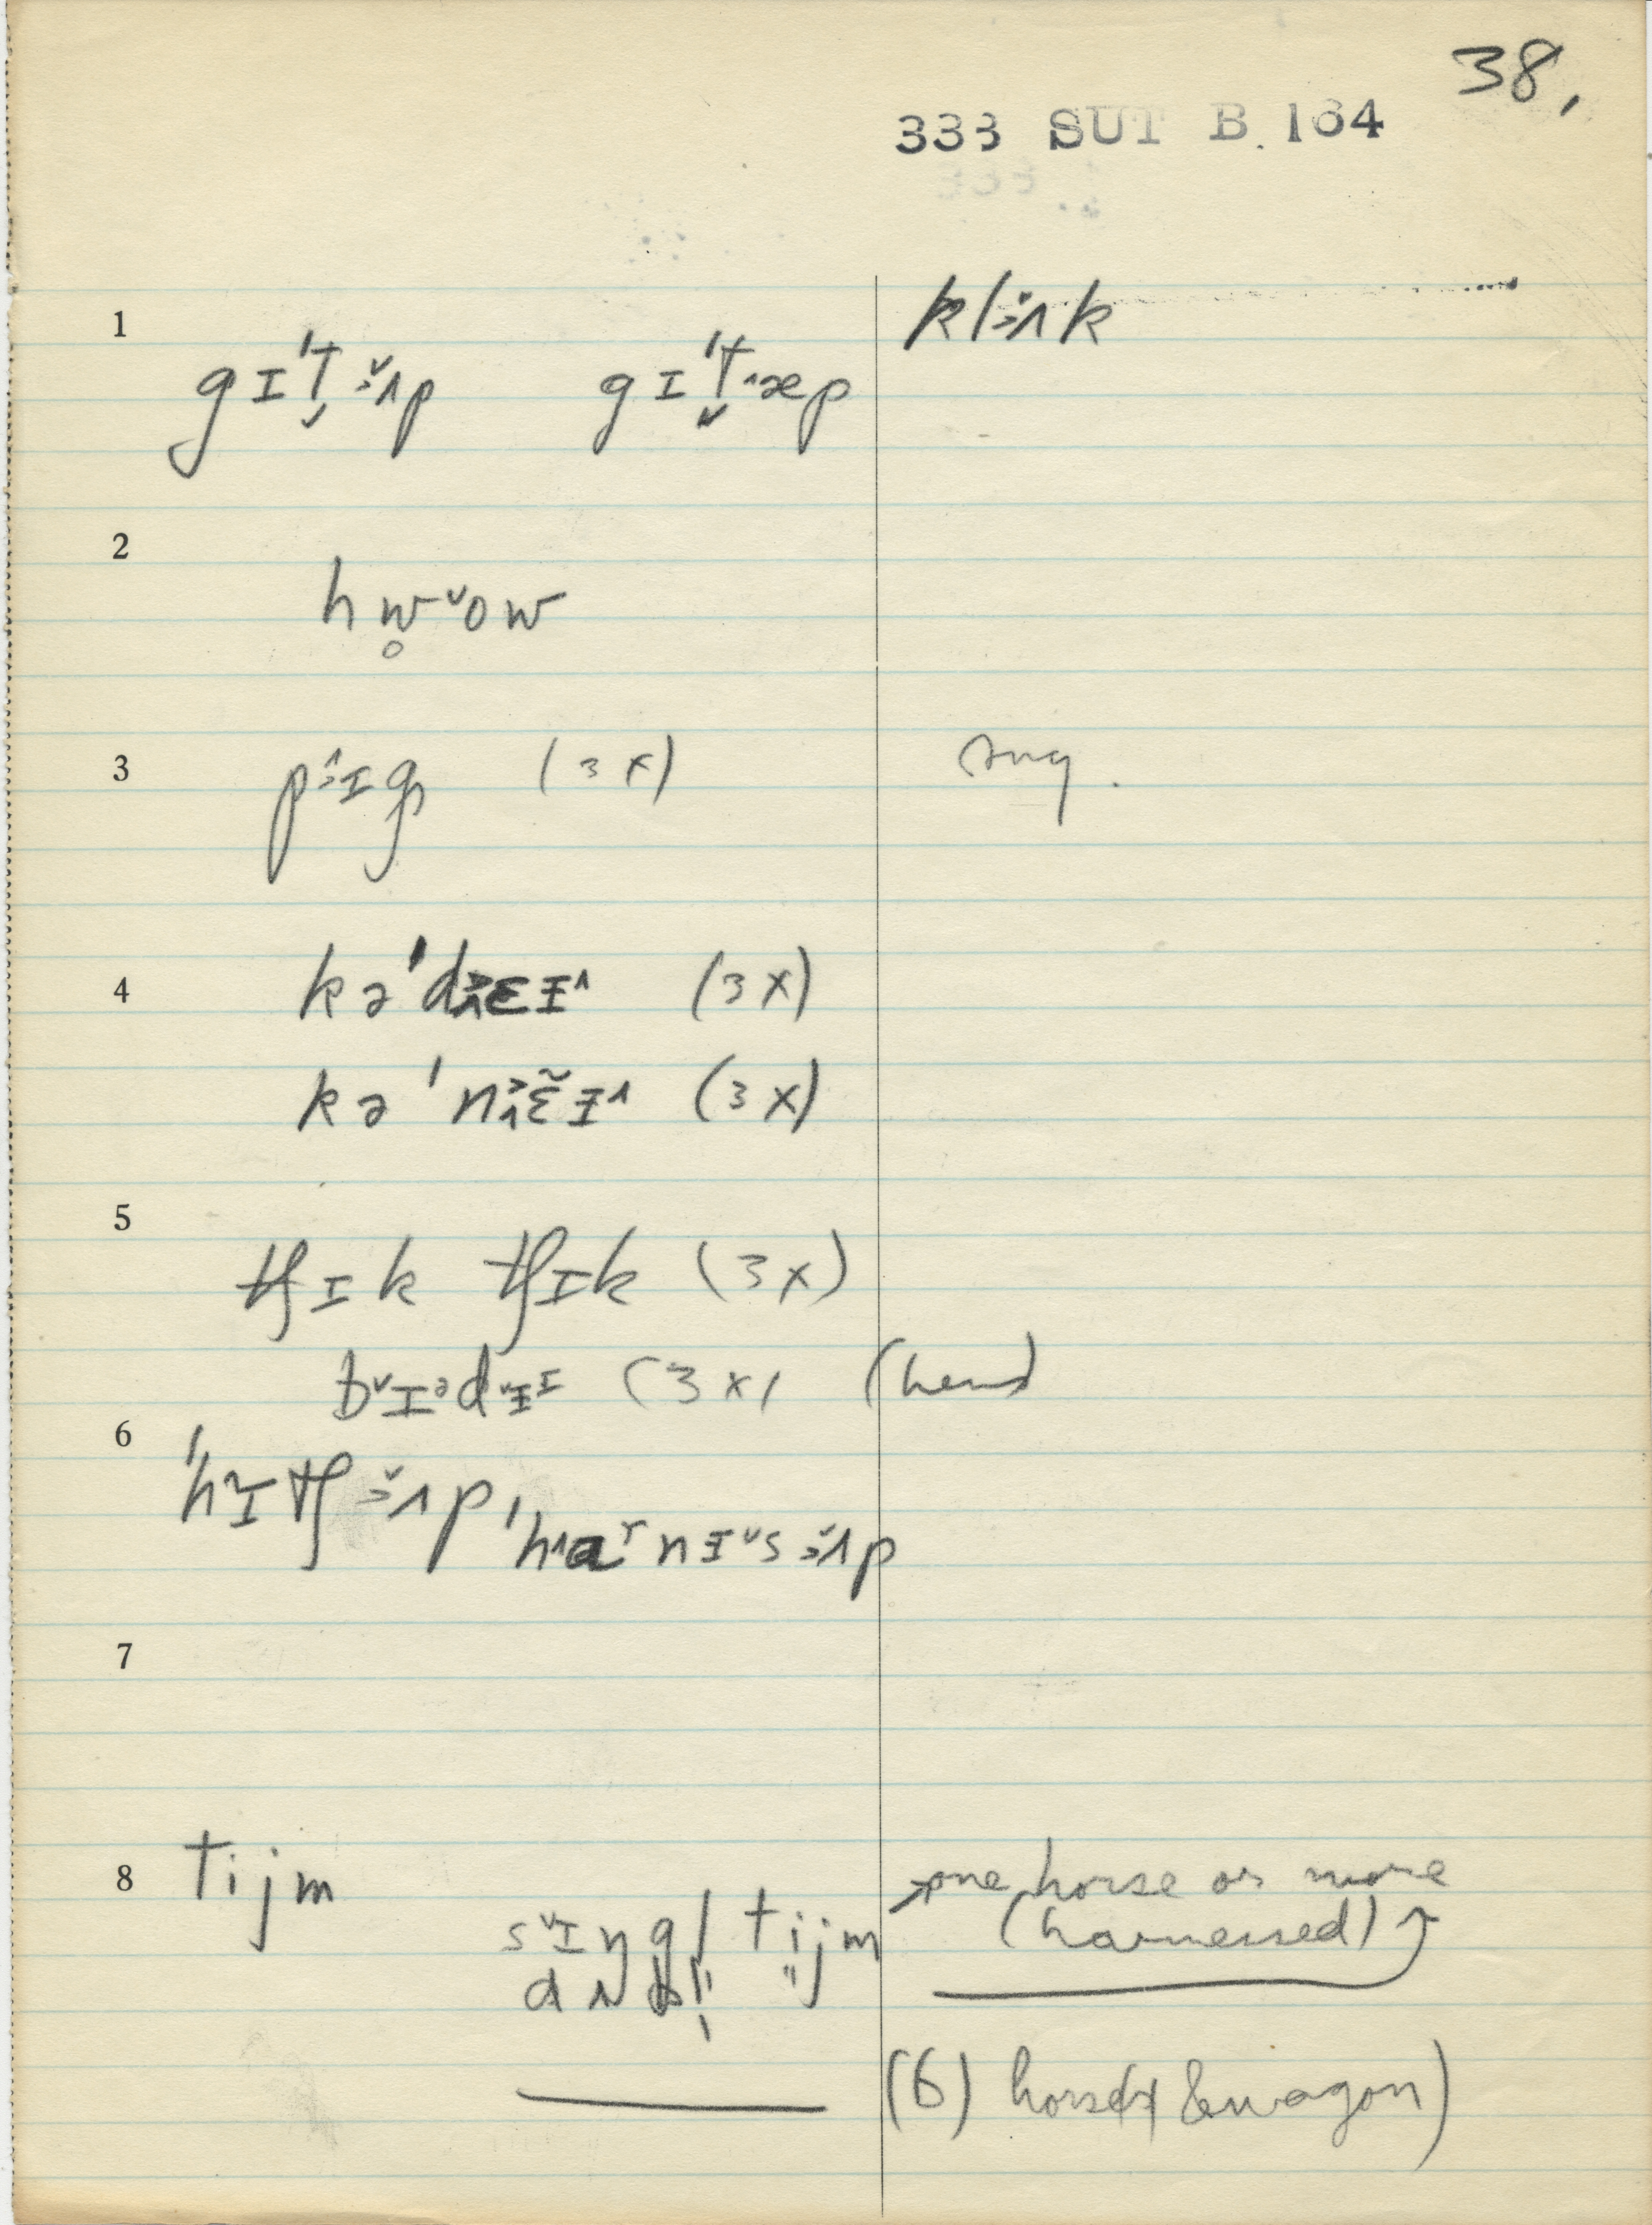 38.
333 SUT B. 164
1 gɪˈt̬ʌp gɪˈt̬æp klʌk
2 hw̥ow
3 pɪg (3x) sug.
4 kəˈdɛɪ (3x)
kəˈnɛ̃ɪ (3x)
5 tʃɪk tʃɪk (3x)
bɪədɪɪ (3x) (hens)
6 ˈhɪtʃʌp, ˈhɑrnɪsʌp
7
8 tijm one horse or more
sɪŋgl tijm (harnessed)
dʌbl̩ " "
(6) horse(s) & wagon)